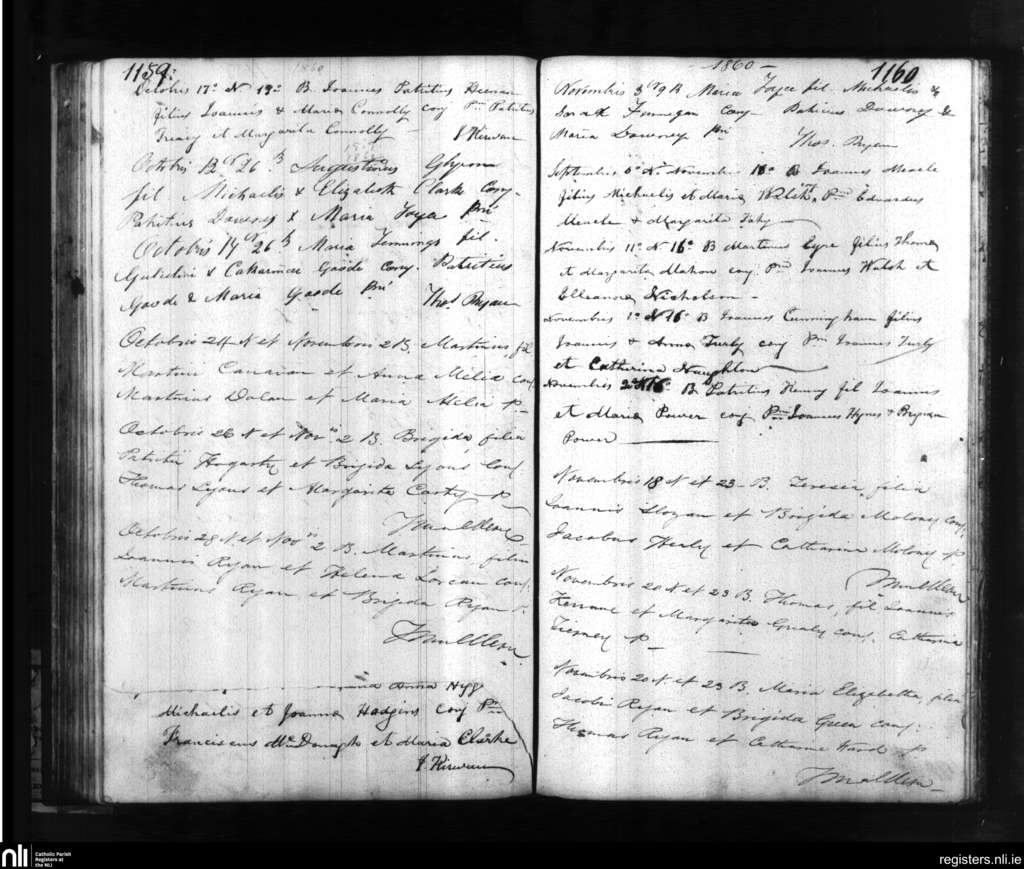 1159.
1860
Octobris 17º N 19º B. Joannes Patritius Heenan
filius Joannis & Maria Connolly conj Pni Patritius
Treacy et Margarita Connolly
J Kirwan
Octobris 12 & 26 B Augustinus Glynn
fil Michaelis & Elizabeth Clarke Conj.
Patritius Downey & Maria Joyce Pni
Octobris 19 & 26 B Maria Jennings fil.
Gulielmi & Catharinae Goode Conj. Patritius
Goode & Maria Goode Pni
Thos Ryan
Octobris 24 N et Novembris 2 B. Martinus, fil
Martini Canavan et Anna Melia conj
Martinus Dolan et Maria Melia P
Octobris 26 N et Nov 2 B. Brigida, filia
Patritii Hogarty et Brigida Lyons Conj
Thomas Lyons et Margarita Carty P
Octobris 28 N et Nov 2 B. Martinus, filius
Joannis Ryan et Helena conj.
Martinus Ryan et Brigida Ryan P.
Anna
Michaelis et Joanna Hodgins conj Pni
Franciscus McDonagh et Maria Clarke
J. Kirwan
1860
1160
Novembris 3 & 9 B Maria Joyce fil. Michaelis &
Finnegan Conj. Patritius Downey &
Maria Downey Pni
Thos. Ryan
Septembris Novembris 16º B Joannes
filius Michaelis et Maria Walsh Pni Edwardus
& Margarita
Novembris 11º N 16º B Martinus Eyre filius Thoma
et Margarita Mahon conj Pni Joannes Walsh et
Elleanora Nicholson
Novembris 1º N 16º B Joannes Cunningham filius
Joannis & Anna Turly conj Pni Joannes Turly
et Catherina Naughton
Novembris 2º N 16º B Patritius Kenny fil Joannes
et Maria Power conj Pni Joannes Hynes & Brigida
Power
Novembris 18 N et 23 B. Teresia, filia
Joannis et Brigida Molony conj
Jacobus Healy et Catharina Molony P
Novembris 20 N et 23 B. Thomas, fil Joannis
et Margarita Grealy conj. Catharina
Tierney P
Novembris 20 N et 23 B. Maria Elizabetha, filia
Jacobi Ryan et Brigida Green conj.
Thomas Ryan et Catharine Ward P
nli
Catholic Parish
Registers at
the NLI
registers.nli.ie